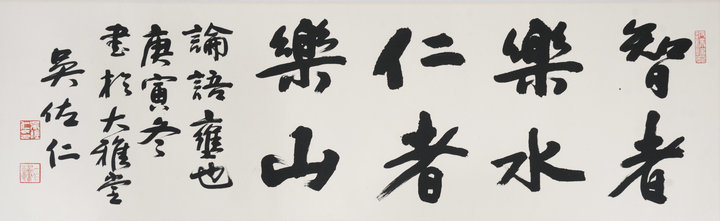 智者
樂水
仁者
樂山
論語雍也
庚寅冬
書於大雅堂
吳佐仁